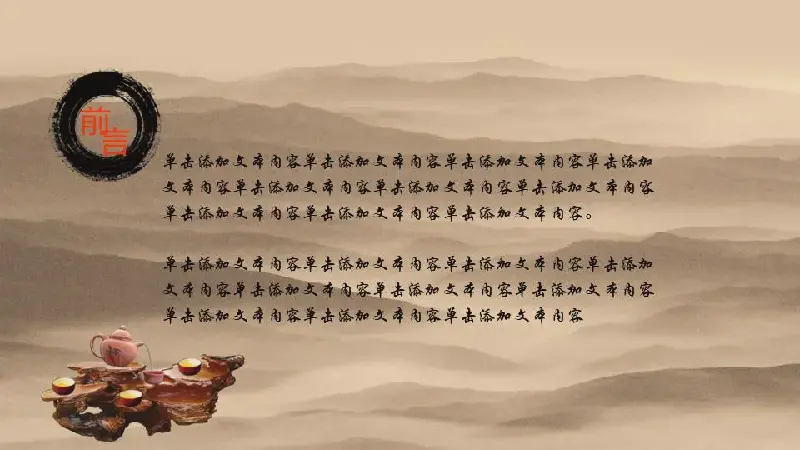 前言
单击添加文本内容单击添加文本内容单击添加文本内容单击添加
文本内容单击添加文本内容单击添加文本内容单击添加文本内容
单击添加文本内容单击添加文本内容单击添加文本内容。
单击添加文本内容单击添加文本内容单击添加文本内容单击添加
文本内容单击添加文本内容单击添加文本内容单击添加文本内容
单击添加文本内容单击添加文本内容单击添加文本内容